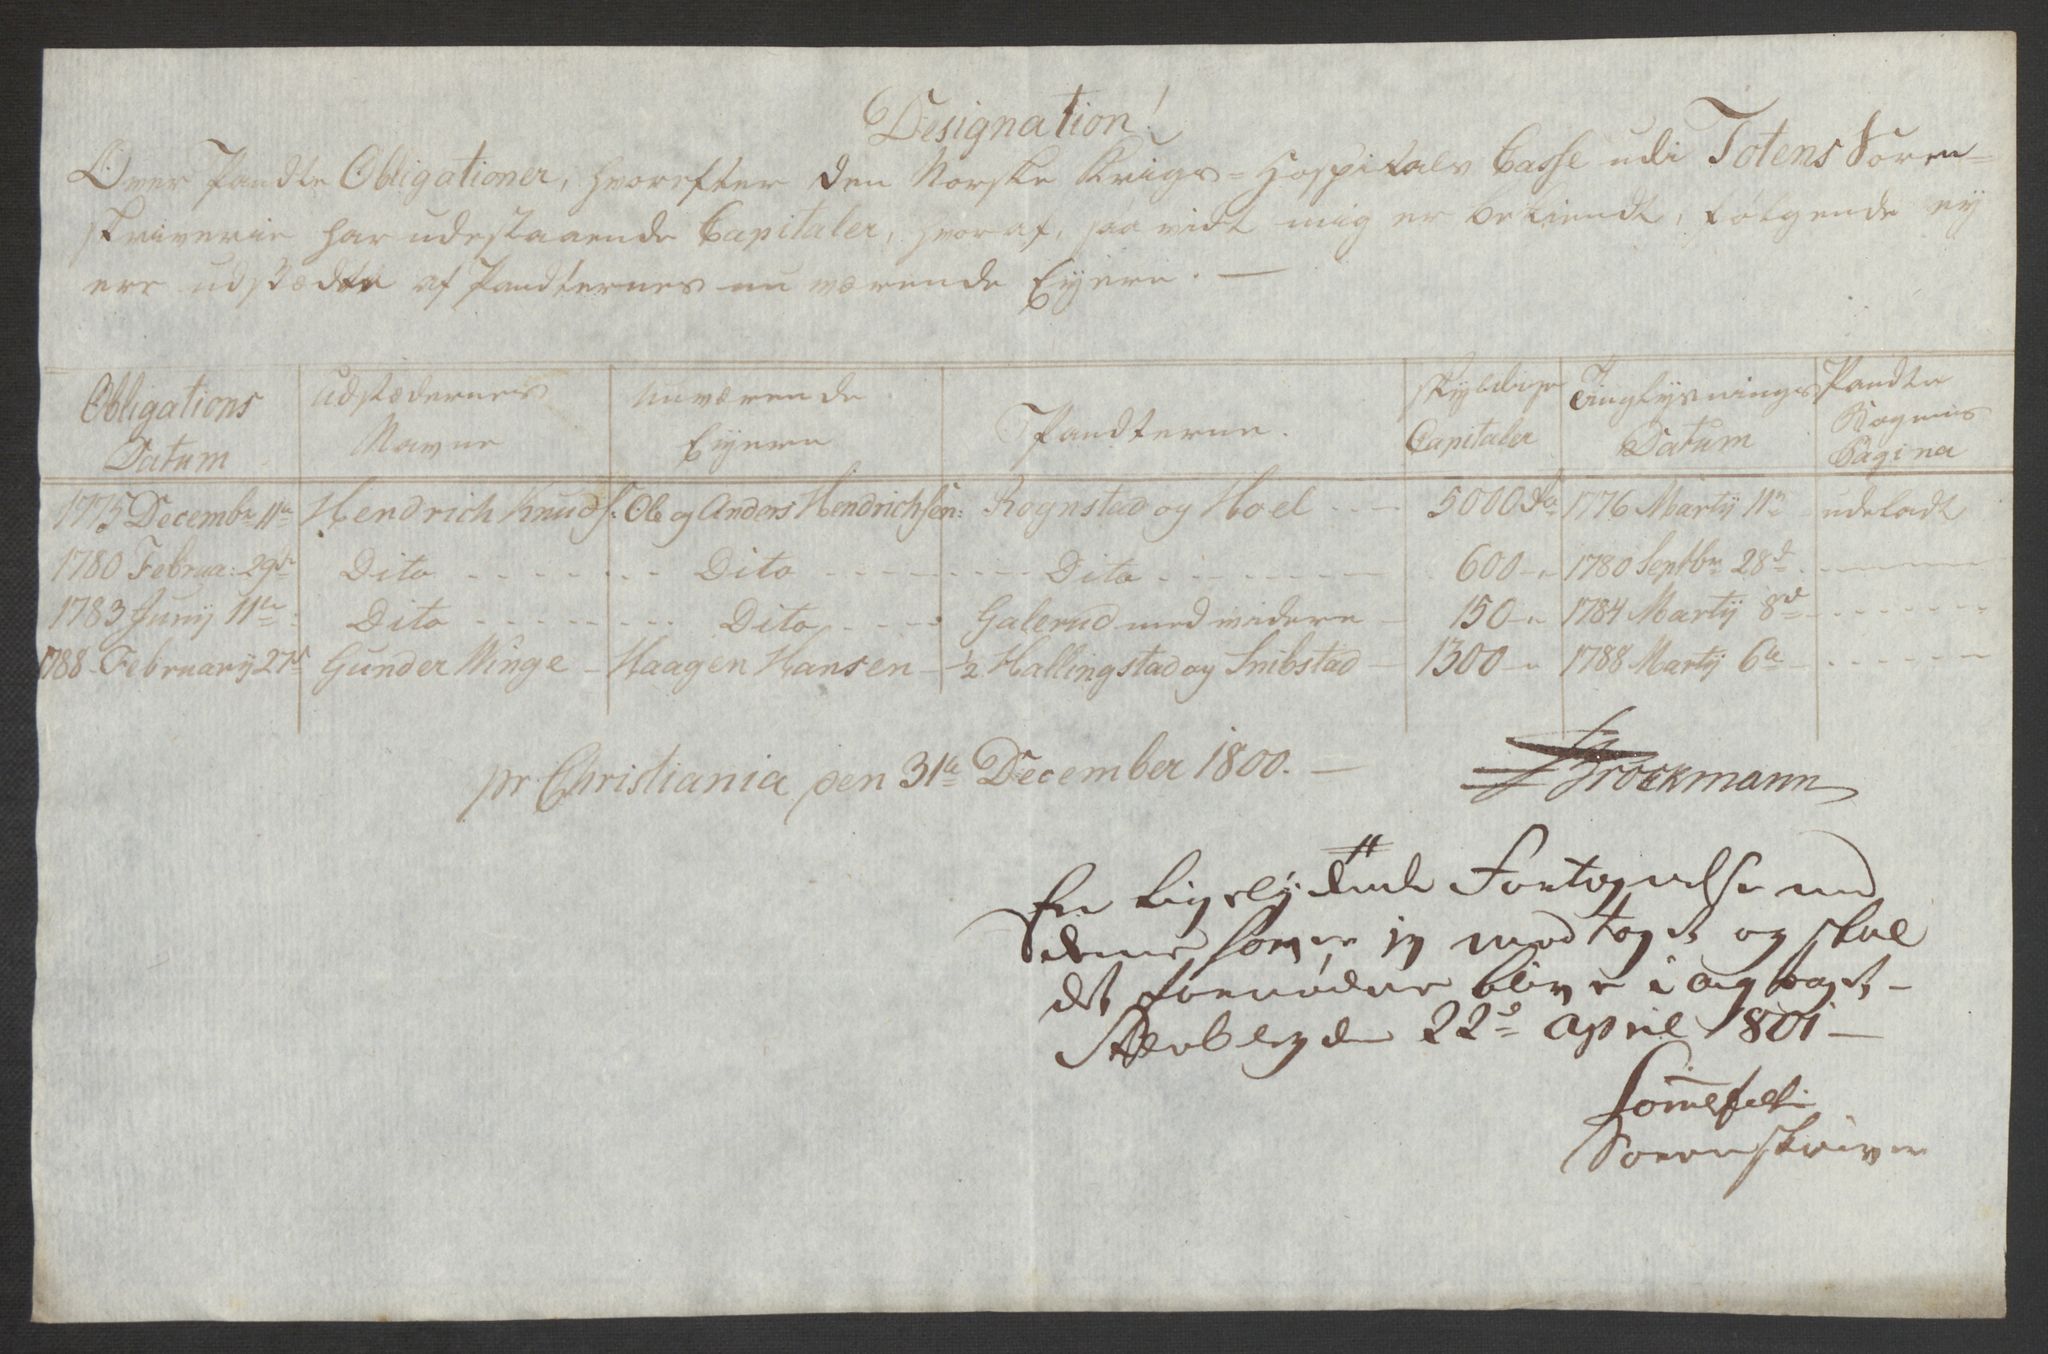 Designation!
Over Pandte Obligationer, hvorefter den Norske Krigs-Hospitals Casse udi Totens Soren-
skriverie har udestaaende Capitaler, hvoraf, saa vidt mig er bekiendt, følgende ey
ere udstædte af Pandternes nu værende Eyere. —
Obligations Datum | Udstædernes Navne | Nuværende Eyere | Pandterne. | Skyldige Capitaler | Tinglysnings Datum | Pandte Bogens Pagina
1775 Decembr 11te | Hendrich Knuds. | Ole og Anders Hendrichsen: | Rognstad og Hoel | 5000 Rdr | 1776 Martij 11te | udeladt
1780 Februa: 29de | Dito | Dito | Dito | 600 - " | 1780 Septbr 28de | - - -
1783 Junij 11te | Dito | Dito | Galerud med videre | 150 - " | 1784 Martij 8de | - - -
1788 Februarij 27de | Gunder Winge | Haagen Hansen | 1/2 Hallingstad og Snibstad | 1300 - " | 1788 Martij 6te | - - -
pr Christiania den 31te December 1800. —
Brockmann
En ligelydende Fortegnelse med
denne har jeg modtaget og skal
det fornødne blive iagttaget —
den 22de April 1801 —
Sommerfelt
Sorenskriver